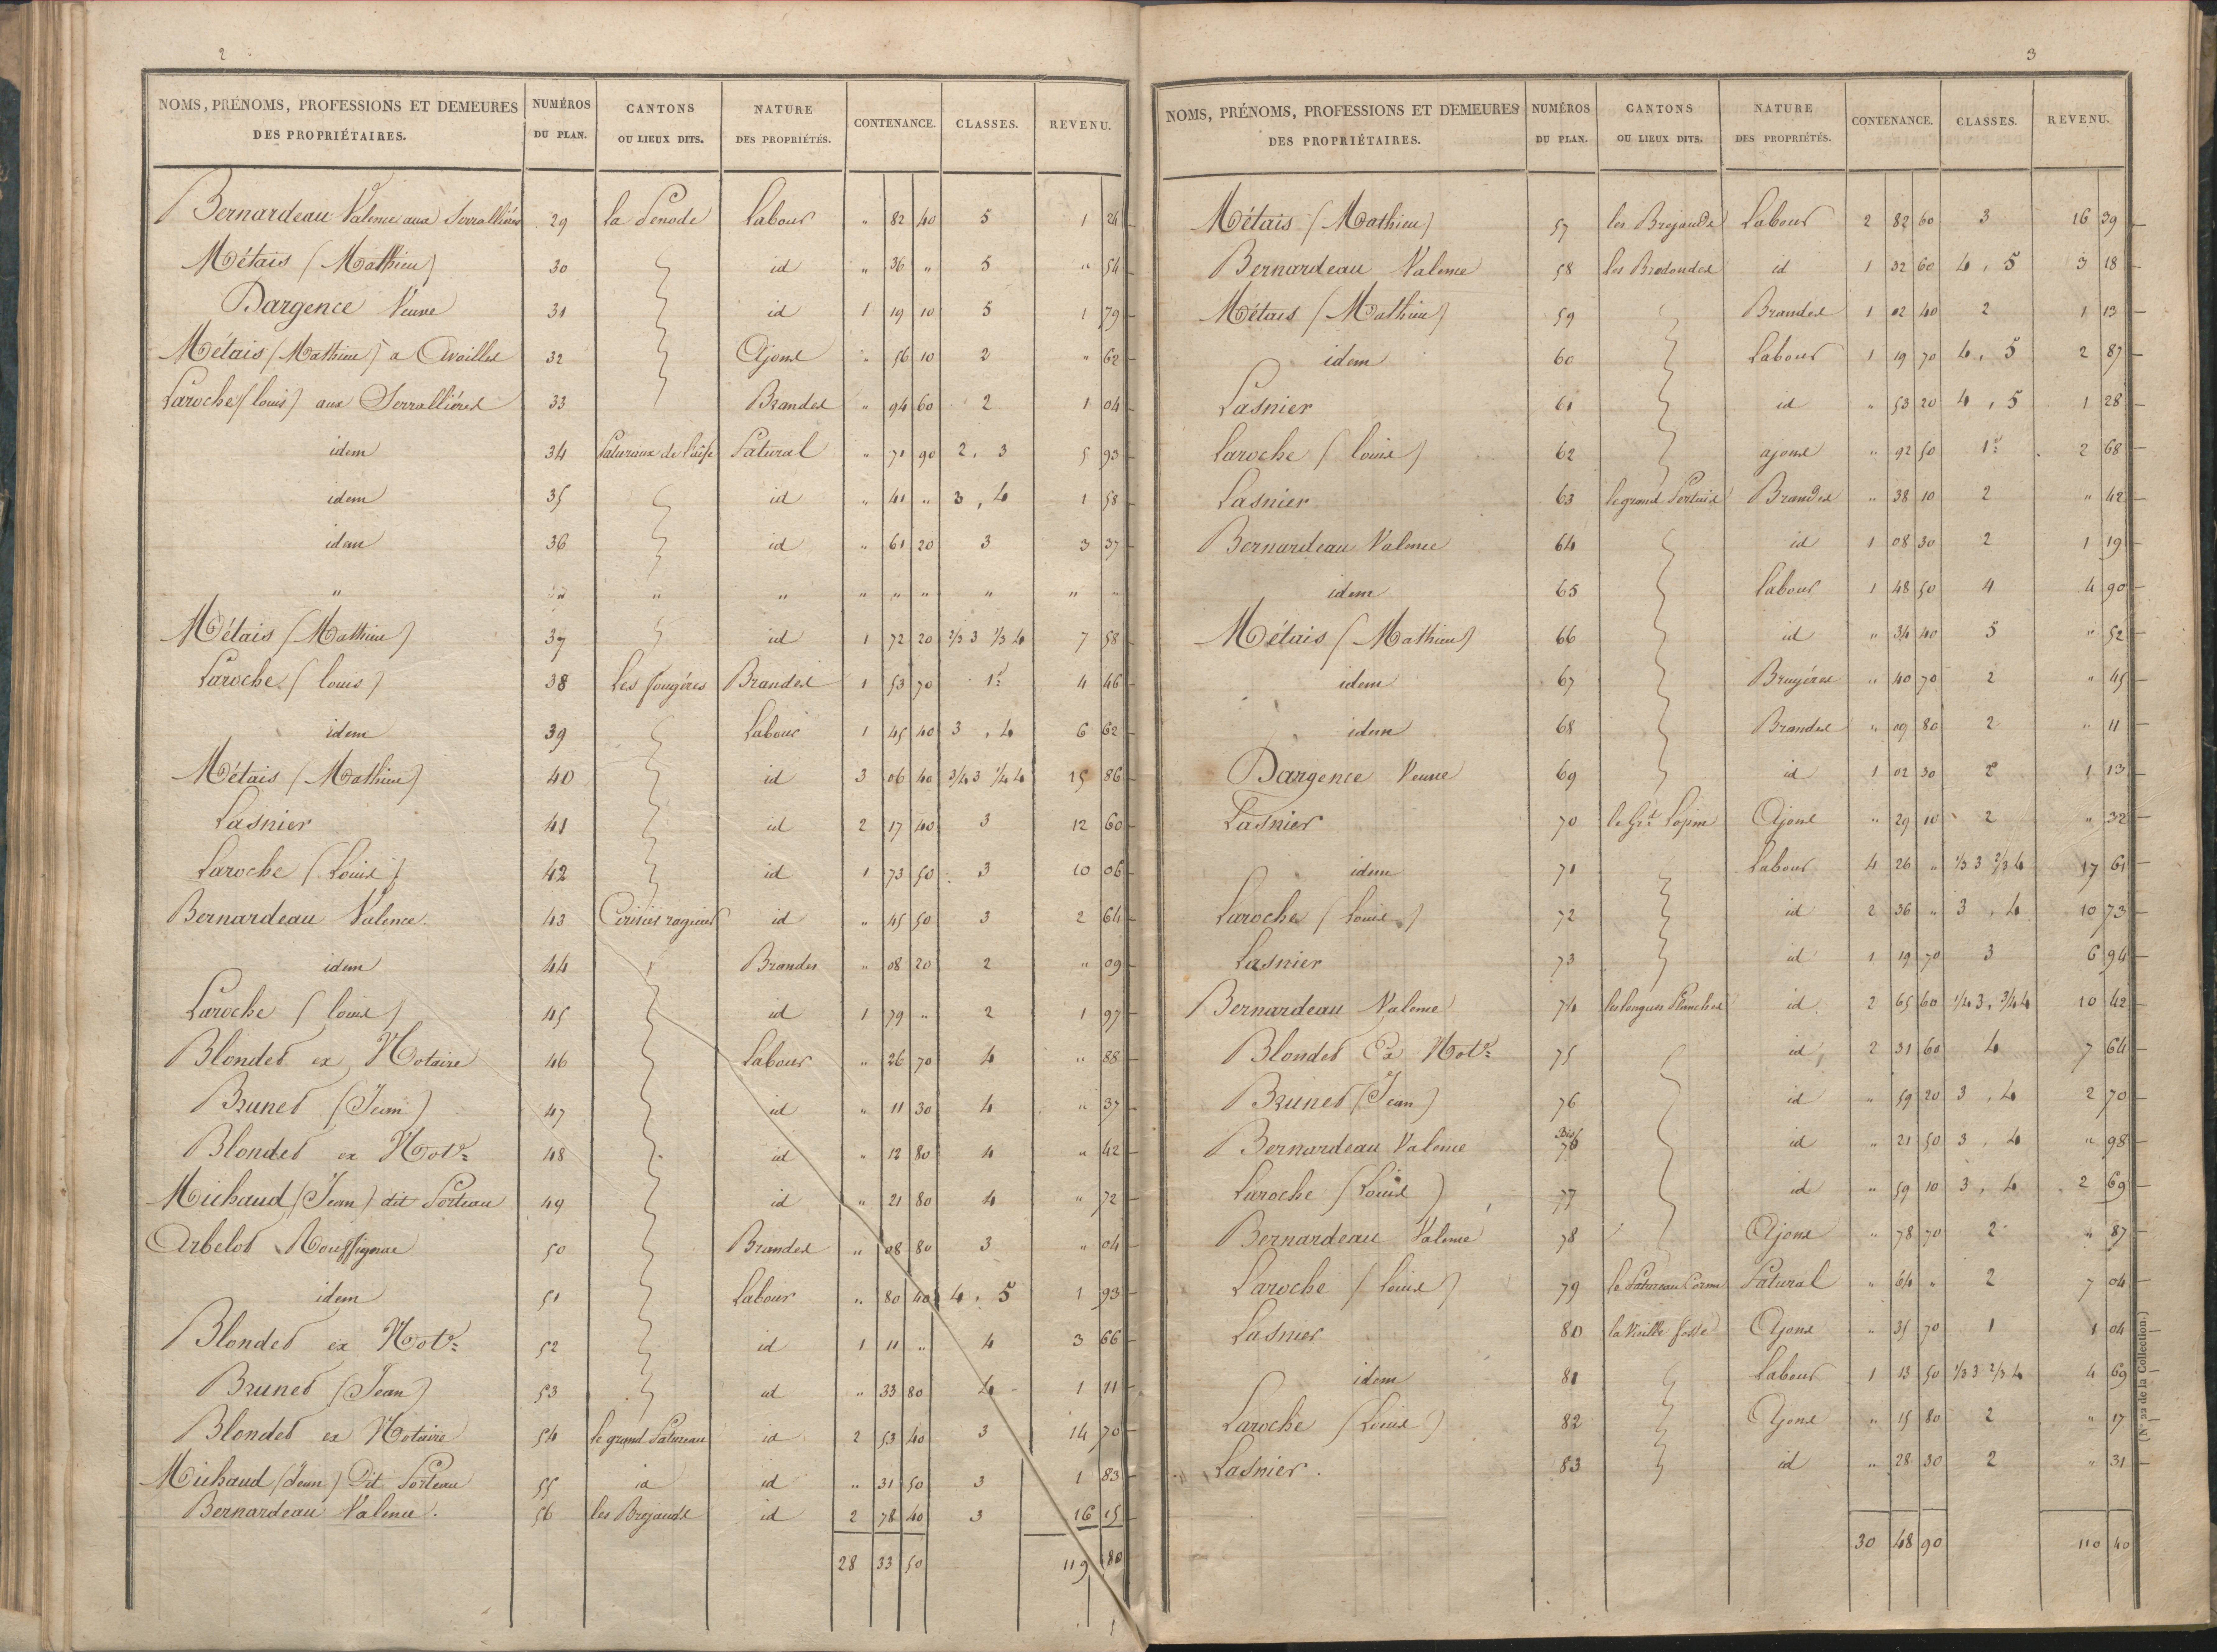 2
NOMS, PRÉNOMS, PROFESSIONS ET DEMEURES DES PROPRIÉTAIRES. NUMÉROS DU PLAN. CANTONS OU LIEUX DITS. NATURE DES PROPRIÉTÉS. CONTENANCE. CLASSES. REVENU.
Bernardeau Valence aux Serrallières 29 la Penode Labour " 82 40 5 1 24
Métais (Mathieu) 30 id " 36 " 5 " 54
Dargence Veuve 31 id 1 19 10 5 1 79
Métais (Mathieu) a Availles 32 Ajons " 56 10 2 " 62
Laroche (louis) aux Serrallières 33 Brandes " 94 60 2 1 04
idem 34 Patureaux de Patural " 71 90 2, 3 5 93
idem 35 id " 41 " 3, 4 1 58
idem 36 id " 61 20 3 3 37
" " " " " " " " " "
Métais (Mathieu) 37 id 1 72 20 2/3 3 1/3 4 7 58
Laroche (louis) 38 Les fougéres Brandes 1 53 70 1re 4 46
idem 39 Labour 1 45 40 3, 4 6 62
Métais (Mathieu) 40 id 3 06 40 3/4 3 1/4 4 15 86
Lasnier 41 id 2 17 40 3 12 60
Laroche (Louis) 42 id 1 73 50 3 10 06
Bernardeau Valence. 43 id " 45 50 3 2 64
idem 44 Brandes " 08 20 2 " 09
Laroche (louis) 45 id 1 79 " 2 1 97
Blondet ex Notaire 46 Labour " 26 70 4 " 88
Brunet (Jean) 47 id " 11 30 4 " 37
Blondet ex Notre 48 id " 12 80 4 " 42
Michaud (Jean) dit Porteau 49 id " 21 80 4 " 72
Arbelot Rouffignac 50 Brandes " 08 80 3 " 04
idem 51 Labour " 80 40 4, 5 1 93
Blondet ex Notre 52 id 1 11 " 4 3 66
Brunet (Jean) 53 id " 33 80 4 1 11
Blondet ex Notaire 54 le grand Patureau id 2 53 40 3 14 70
Michaud (Jean) Dit Porteau 55 id id " 31 50 3 1 83
Bernardeau Valence. 56 les Brejauds id 2 78 40 3 16 15
28 33 50 119 80
3
NOMS, PRÉNOMS, PROFESSIONS ET DEMEURES DES PROPRIÉTAIRES. NUMÉROS DU PLAN. CANTONS OU LIEUX DITS. NATURE DES PROPRIÉTÉS. CONTENANCE. CLASSES. REVENU.
Métais (Mathieu) 57 les Brejauds Labour 2 82 60 3 16 39
Bernardeau Valence 58 les Bredondes id 1 32 60 4, 5 3 18
Métais (Mathieu) 59 Brandes 1 02 40 2 1 13
idem 60 Labour 1 19 70 4, 5 2 87
Lasnier 61 id " 53 20 4, 5 1 28
Laroche (louis) 62 ajons " 92 50 1re 2 68
Lasnier 63 le grand Pertuis Brandes " 38 10 2 " 42
Bernardeau Valence 64 id 1 08 30 2 1 19
idem 65 Labour 1 48 50 4 4 90
Métais (Mathieu) 66 id " 34 40 5 " 52
idem 67 Bruyéres " 40 70 2 " 45
idem 68 Brandes " 09 80 2 " 11
Dargence Veuve 69 id 1 02 30 2 1 13
Lasnier 70 le Grd Ajons " 29 10 2 " 32
idem 71 Labour 4 26 " 1/3 3 2/3 4 17 61
Laroche (Louis) 72 id 2 36 " 3, 4 10 73
Lasnier 73 id 1 19 70 3 6 94
Bernardeau Valence 74 les longues Planches id 2 65 60 1/4 3, 3/4 4 10 42
Blondet Ex Notre 75 id 2 31 60 4 7 64
Brunet (Jean) 76 id " 59 20 3, 4 2 70
Bernardeau Valence 76 Bis id " 21 50 3, 4 " 98
Laroche (Louis) 77 id " 59 10 3, 4 2 69
Bernardeau Valence 78 Ajons " 78 70 2 " 87
Laroche (louis) 79 le Patureau Patural " 64 " 2 7 04
Lasnier 80 la Vieille fosse Ajons " 35 70 1 1 04
idem 81 Labour 1 13 50 1/3 3 2/3 4 4 69
Laroche (Louis) 82 Ajons " 15 80 2 " 17
Lasnier. 83 id " 28 30 2 " 31
30 48 90 110 40
(N° 22 de la Collection.)